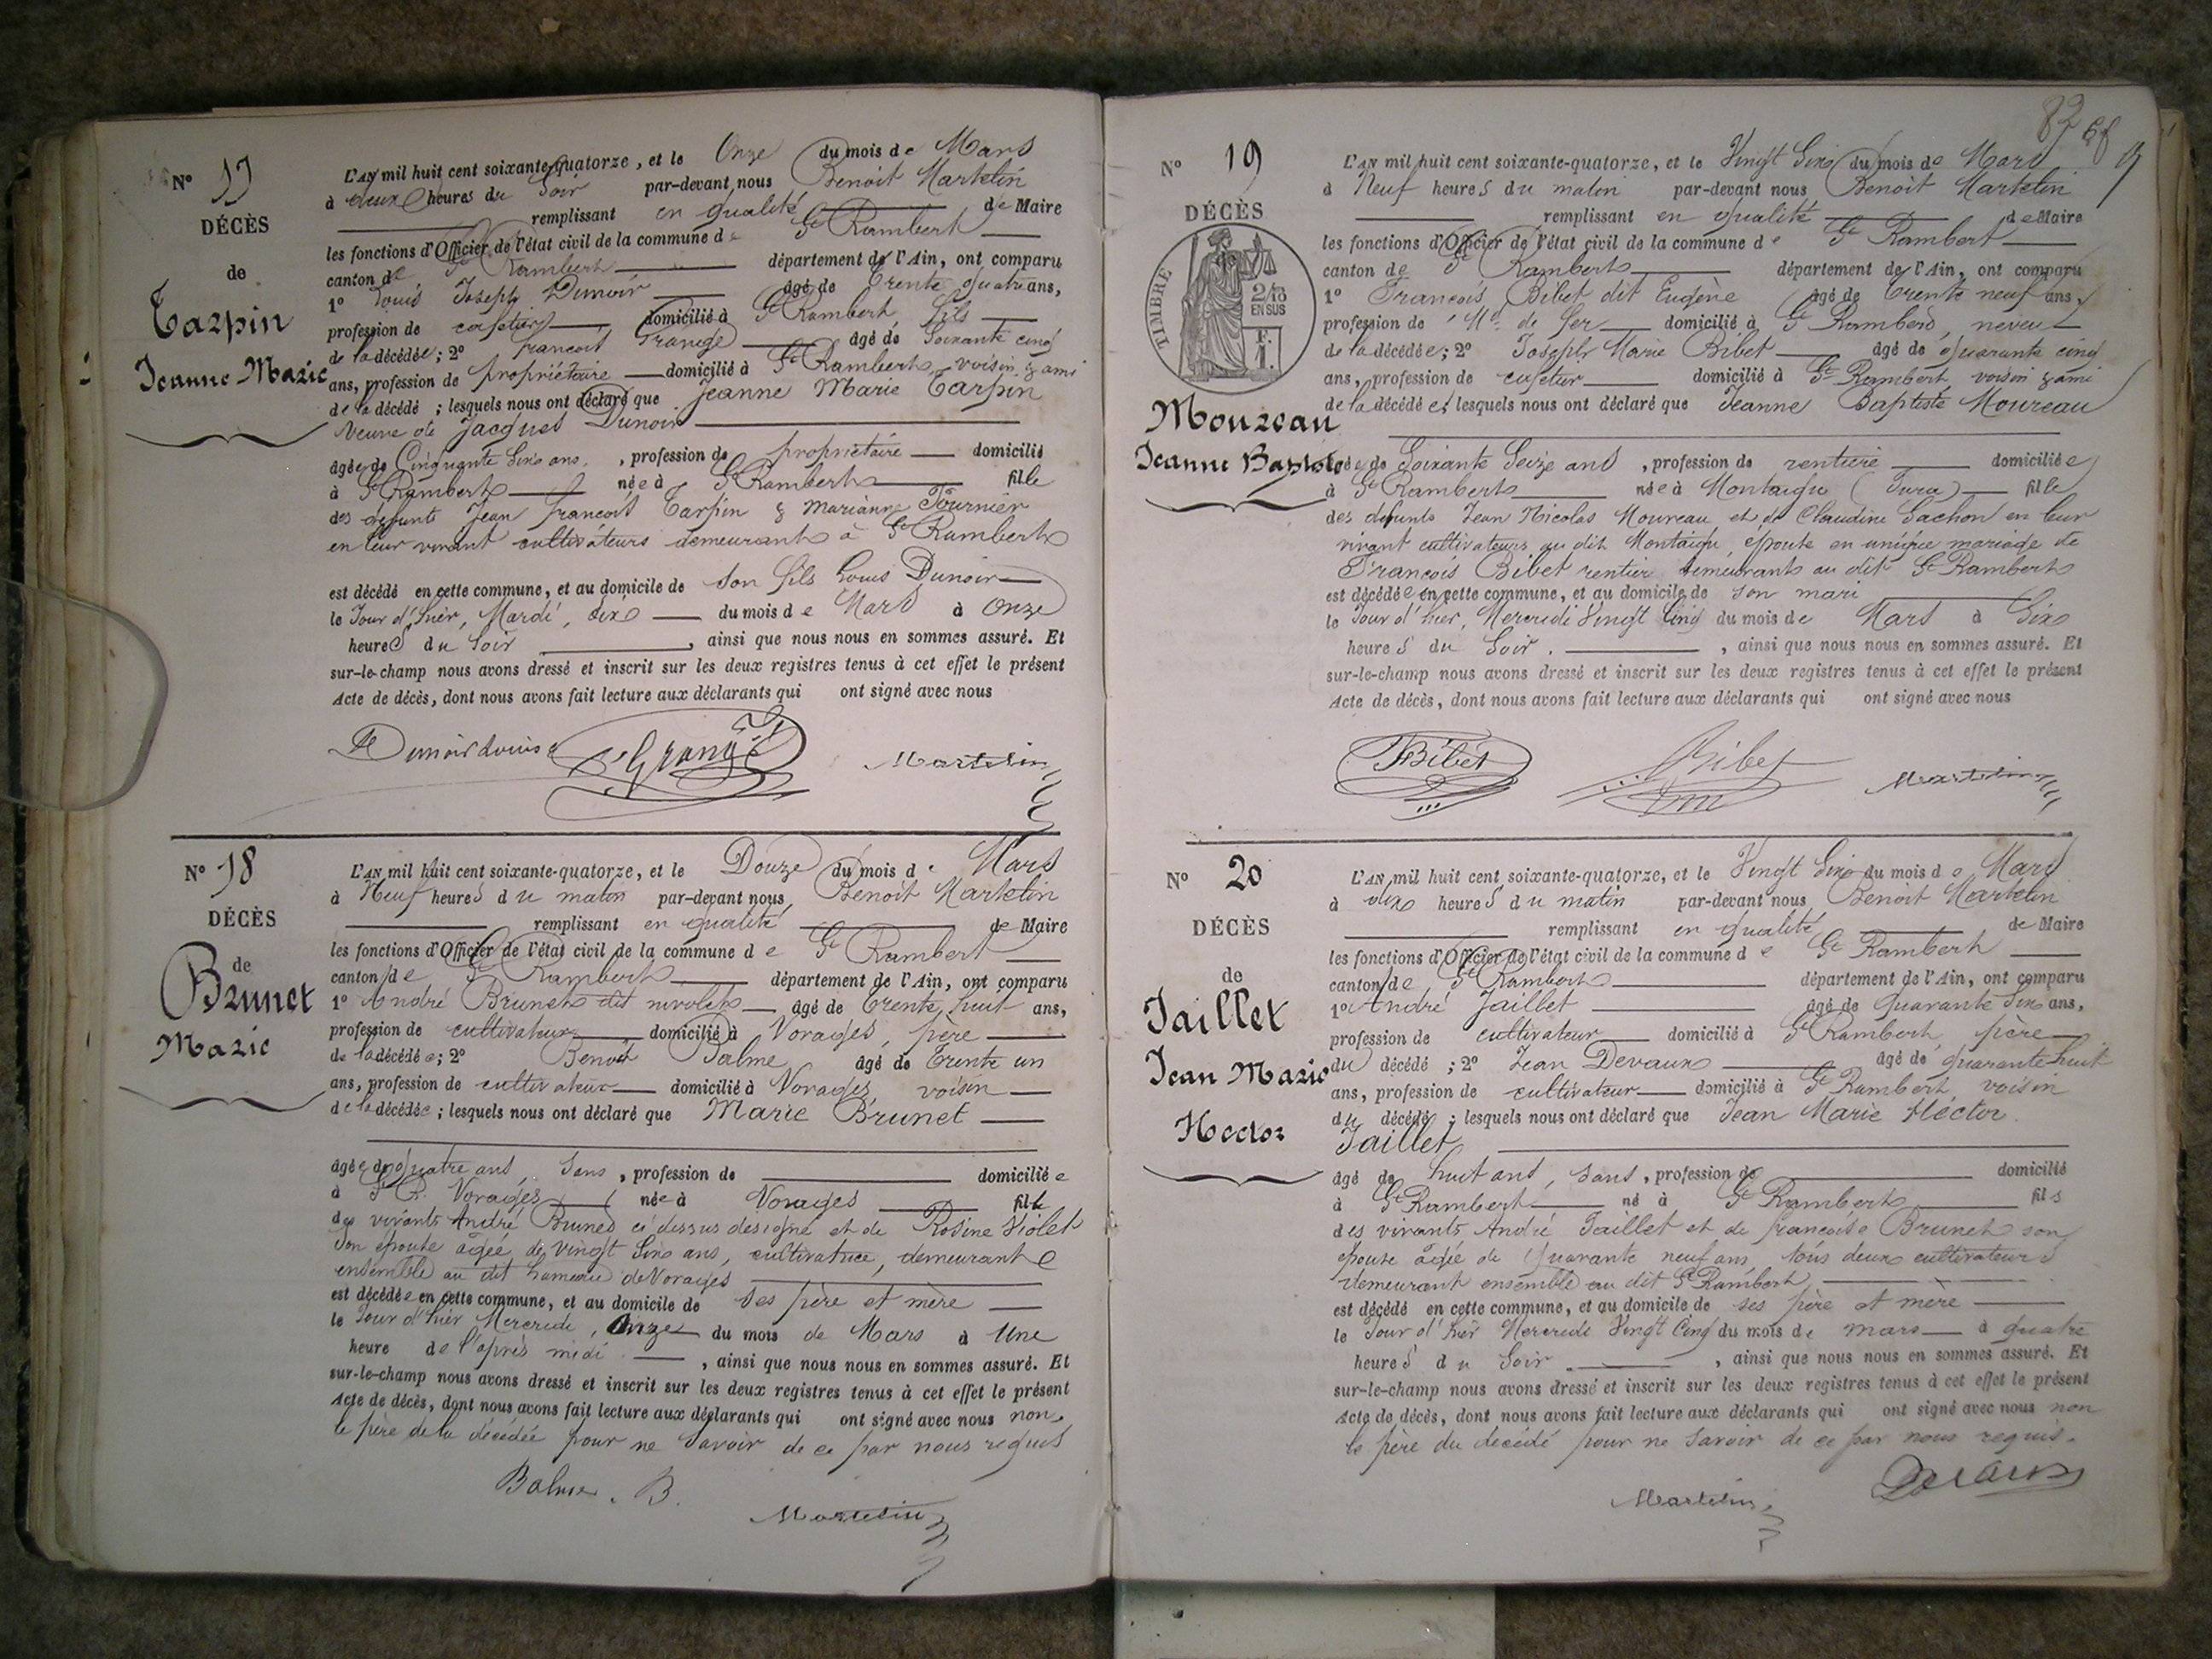 N° 17
DÉCÈS
de
Tarpin
Jeanne Marie
L'AN mil huit cent soixante-quatorze, et le Onze du mois de Mars
à deux heures du Soir par-devant nous Benoit Martelin
remplissant en qualité de Maire
les fonctions d'Officier de l'état civil de la commune de St Rambert
canton de St Rambert département de l'Ain, ont comparu
1° Louis Joseph Dunoir âgé de Trente quatre ans,
profession de cafetier domicilié à St Rambert fils
de la décédée; 2° françois Grange âgé de Soixante cinq
ans, profession de propriétaire domicilié à St Rambert, voisin & ami
de la décédé ; lesquels nous ont déclaré que Jeanne Marie Tarpin
Veuve de Jacques Dunoir
âgée de Cinquante Six ans, , profession de propriétaire domicilié
à St Rambert née à St Rambert fille
des défunts Jean françois Tarpin & Marianne Fournier
en leur vivant cultivateurs demeurant à St Rambert
est décédé en cette commune, et au domicile de son fils Louis Dunoir
le Jour d'hier, Mardi, dix du mois de Mars à Onze
heures du Soir , ainsi que nous nous en sommes assuré. Et
sur-le-champ nous avons dressé et inscrit sur les deux registres tenus à cet effet le présent
Acte de décès, dont nous avons fait lecture aux déclarants qui ont signé avec nous
Dunoir Louis Grange Martelin
N° 18
DÉCÈS
de
Brunet
Marie
L'AN mil huit cent soixante-quatorze, et le Douze du mois de Mars
à Neuf heures du matin par-devant nous Benoit Martelin
remplissant en qualité de Maire
les fonctions d'Officier de l'état civil de la commune de St Rambert
canton de St Rambert département de l'Ain, ont comparu
1° André Brunet dit nivolet âgé de Trente huit ans,
profession de cultivateur domicilié à Vorages, père
de la décédée; 2° Benoit Balme âgé de Trente un
ans, profession de cultivateur domicilié à Vorages voisin
de la décédée; lesquels nous ont déclaré que Marie Brunet
âgée de quatre ans, Sans , profession de domiciliée
à Vorages née à Vorages fille
des vivants André Brunet ci dessus désigné et de Rosine Violet
son épouse âgée de vingt Six ans, cultivatrice, demeurant
ensemble au dit hameau de Vorages
est décédée en cette commune, et au domicile de ses père et mère
le Jour d'hier Mercredi, Onze du mois de Mars à Une
heure de l'après midi , ainsi que nous nous en sommes assuré. Et
sur-le-champ nous avons dressé et inscrit sur les deux registres tenus à cet effet le présent
Acte de décès, dont nous avons fait lecture aux déclarants qui ont signé avec nous non
le père de la décédée pour ne Savoir de ce par nous requis
Balme. B.
Martelin
82
N° 19
DÉCÈS
de
TIMBRE
2/10
EN SUS
F.
1.
Moureau
Jeanne Baptiste
L'AN mil huit cent soixante-quatorze, et le Vingt Six du mois de Mars
à Neuf heures du matin par-devant nous Benoit Martelin
remplissant en qualité de Maire
les fonctions d'Officier de l'état civil de la commune de St Rambert
canton de St Rambert département de l'Ain, ont comparu
1° François Bibet dit Eugène âgé de Trente neuf ans,
profession de Md de fer domicilié à St Rambert, neveu
de la décédée; 2° Joseph Marie Bibet âgé de quarante cinq
ans, profession de cafetier domicilié à St Rambert voisin & ami
de la décédée; lesquels nous ont déclaré que Jeanne Baptiste Moureau
âgée de Soixante Seize ans , profession de rentière domiciliée
à St Rambert née à Montaigu (Jura) fille
des défunts Jean Nicolas Moureau et de Claudine Gachon en leur
vivant cultivateurs au dit Montaigu, épouse en unique mariage de
François Bibet rentier demeurant au dit St Rambert
est décédée en cette commune, et au domicile de son mari
le Jour d'hier, Mercredi Vingt Cinq du mois de Mars à Six
heures du Soir. , ainsi que nous nous en sommes assuré. Et
sur-le-champ nous avons dressé et inscrit sur les deux registres tenus à cet effet le présent
Acte de décès, dont nous avons fait lecture aux déclarants qui ont signé avec nous
Bibet Bibet Martelin
N° 20
DÉCÈS
de
Jaillet
Jean Marie
Hector
L'AN mil huit cent soixante-quatorze, et le Vingt Six du mois de Mars
à dix heures du matin par-devant nous Benoit Martelin
remplissant en qualité de Maire
les fonctions d'Officier de l'état civil de la commune de St Rambert
canton de St Rambert département de l'Ain, ont comparu
1° André Jaillet âgé de Quarante Six ans,
profession de cultivateur domicilié à St Rambert, père
du décédé ; 2° Jean Devaux âgé de quarante huit
ans, profession de cultivateur domicilié à St Rambert, voisin
du décédé ; lesquels nous ont déclaré que Jean Marie Hector
Jaillet
âgé de huit ans, sans , profession de domicilié
à St Rambert né à St Rambert fils
des vivants André Jaillet et de françoise Brunet son
épouse âgée de Quarante neuf ans, tous deux cultivateurs
demeurant ensemble au dit St Rambert
est décédé en cette commune, et au domicile de ses père et mère
le Jour d'hier Mercredi Vingt Cinq du mois de mars à quatre
heures du Soir. , ainsi que nous nous en sommes assuré. Et
sur-le-champ nous avons dressé et inscrit sur les deux registres tenus à cet effet le présent
Acte de décès, dont nous avons fait lecture aux déclarants qui ont signé avec nous non
le père du décédé pour ne savoir de ce par nous requis.
Martelin Devaux